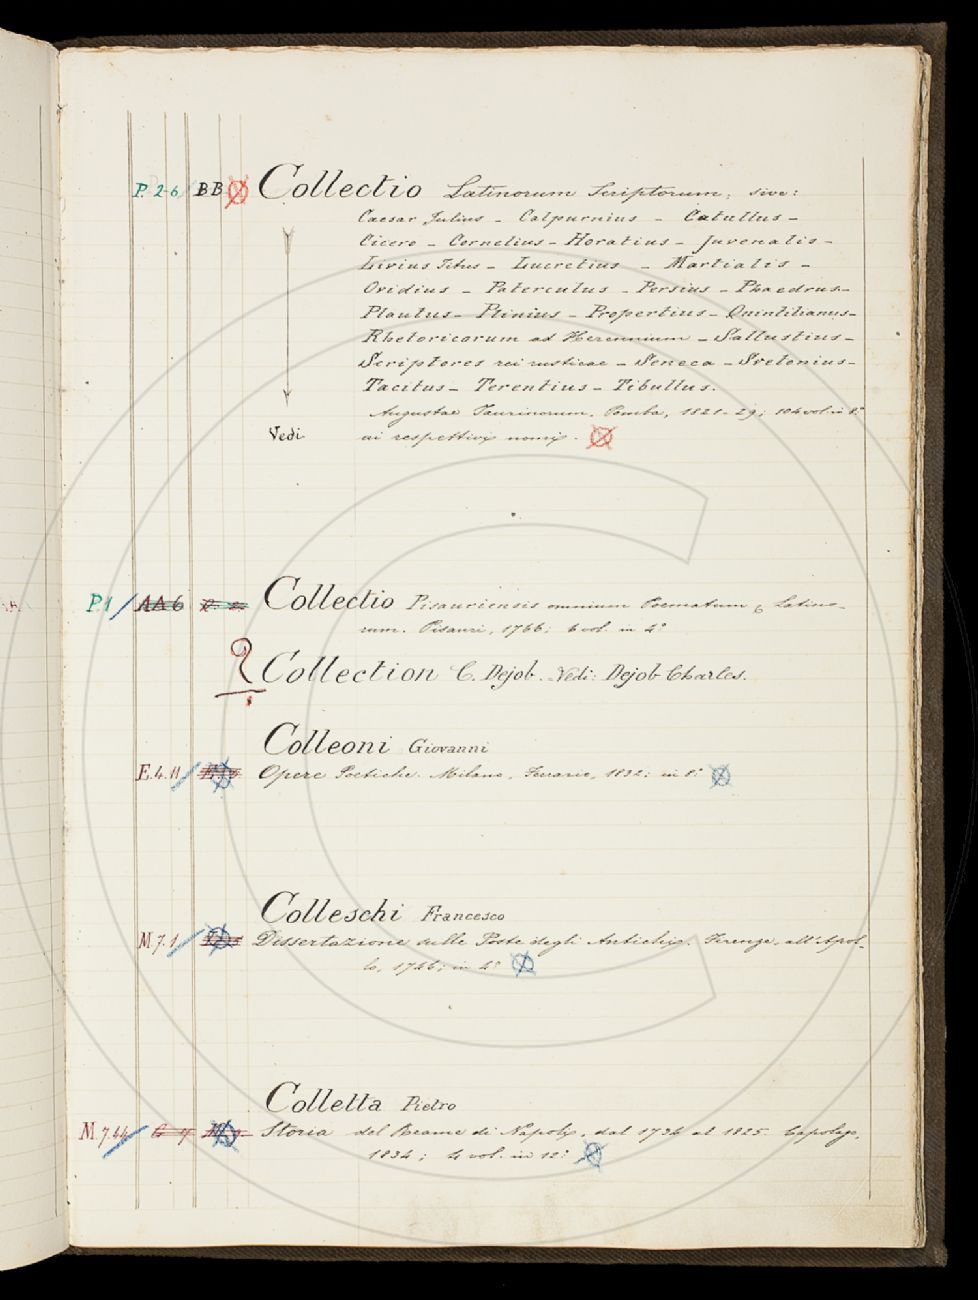 P. 2-6 BB Collectio Latinorum Scriptorum, sive:
Caesar Julius - Calpurnius - Catullus -
Cicero - Cornelius - Horatius - Juvenalis -
Livius Titus - Lucretius - Martialis -
Ovidius - Paterculus - Persius - Phaedrus -
Plautus - Plinius - Propertius - Quintilianus -
Rhetoricorum ad Herennium - Sallustius -
Scriptores rei rusticae - Seneca - Svetonius -
Tacitus - Terentius - Tibullus.
Augustae Taurinorum, Pomba, 1821-29; 104 vol. in 8.°
Vedi ai respettivi nomi.
P.1 AA 6 Collectio Pisauriensis omnium Poematum Latino-
rum. Pisauri, 1766; 6 vol. in 4.°
? Collection C. Dejob. Vedi: Dejob Charles.
Colleoni Giovanni
E.4.11 Opere Poetiche. Milano, 1832; in 8.°
Colleschi Francesco
M.7.1 Dissertazione sulle Poste degli Antichi. Firenze, all'Apol-
lo, 1746; in 4.°
Colletta Pietro
M.7.44 Storia del Reame di Napoli, dal 1734 al 1825. Capolago,
1834; 4 vol. in 12.°